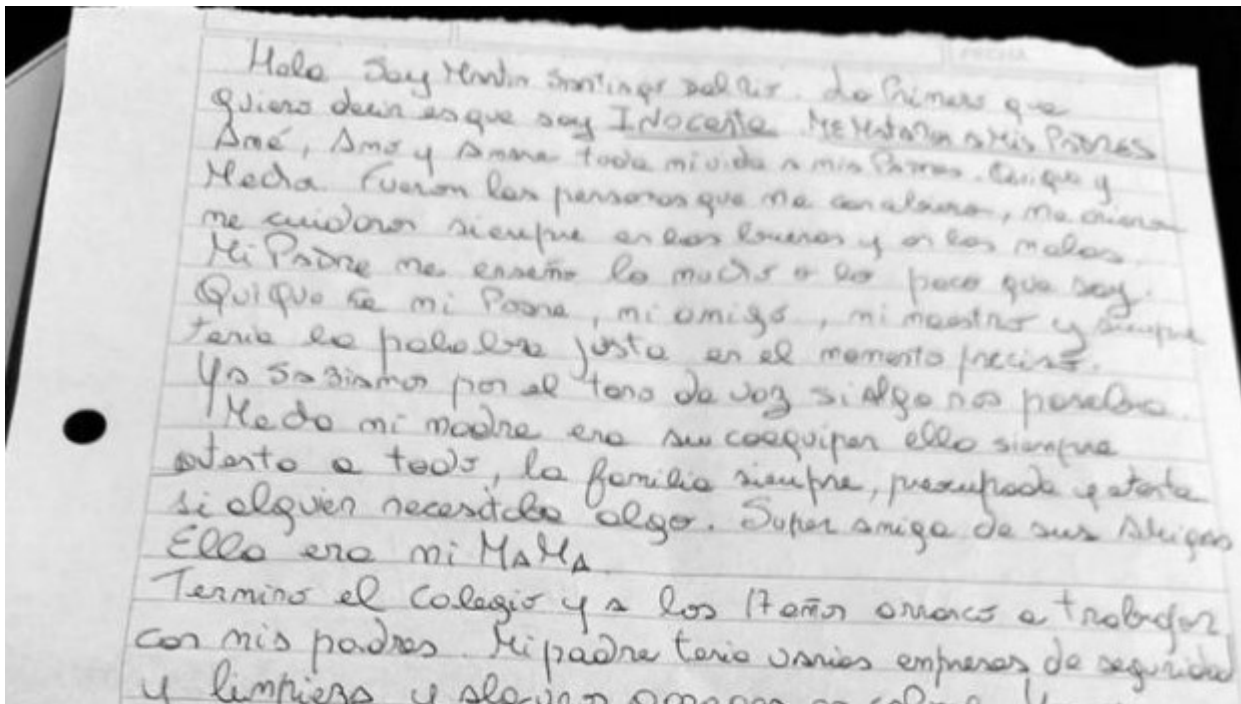 FECHA
Hola Soy Martin Santiago Del Rio. Lo Primero que
quiero decir es que soy INocente ME MAtaRon a Mis PADRES
Amé, Amo y Amare toda mi vida a mis Padres. Quique y
Mecha. Fueron las personas que me me criaron,
me cuidaron siempre en las buenas y en las malas.
Mi PADRE me enseño lo mucho o lo poco que soy.
Quique fue mi Padre, mi amigo, mi maestro y siempre
tenia la palabra justa en el momento preciso.
Ya Sabiamos por el tono de voz si Algo nos pasaba.
Mecha mi madre era su coequiper ella siempre
atenta a todo, la familia siempre, preocupada y atenta
si alguien necesitaba algo. Super amiga de sus Amigas
Ella era mi MAMA
Termino el colegio y a los 17 años arranco a trabajar
con mis padres. Mi padre tenia varias empresas de seguridad
y limpieza y